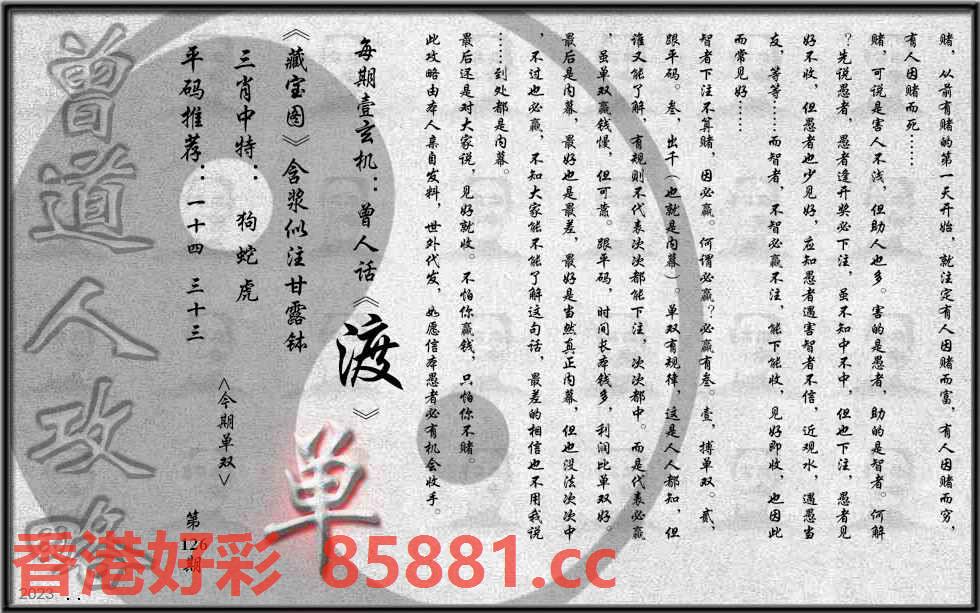 赌，从前有赌的第一天开始，就注定有人因赌而富，有人因赌而穷，
有人因赌而死……
赌，可说是害人不浅，但助人也多。害的是愚者，助的是智者。何解
？先说愚者，愚者逢开奖必下注，虽不知中不中，但也下注，愚者见
好不收，但愚者也少见好，应知愚者遇害智者不信，近观水，遇愚当
友，等等……而智者，不智必赢不注，能下能收，见好即收，也因此
而常见好……
智者下注不算赌，因必赢。何谓必赢？必赢有叁。壹，搏单双。贰，
跟平码。叁，出千（也就是内幕）。单双有规律，这是人人都知，但
谁又能了解，有规则不代表次次都能下注，次次都中。而是代表必赢
，虽单双赢钱慢，但可靠。跟平码，时间长本钱多，利润比单双好。
最后是内幕，最好也是最差，最好是当然真正内幕，但也没法次次中
，不过也必赢，不知大家能不能了解这句话，最差的相信也不用我说
……到处都是内幕。
最后还是对大家说，见好就收。不怕你赢钱，只怕你不赌。
此攻略由本人亲自发料，世外代发，如愿信本愚者必有机会收手。
每期壹玄机：曾人话《渡》
《藏宝图》含浆似注甘露钵
三肖中特：狗蛇虎
平码推荐：一十四 三十三
<今期单双>
单
第
126
期
曾道人攻略
香港好彩 85881.cc
2023